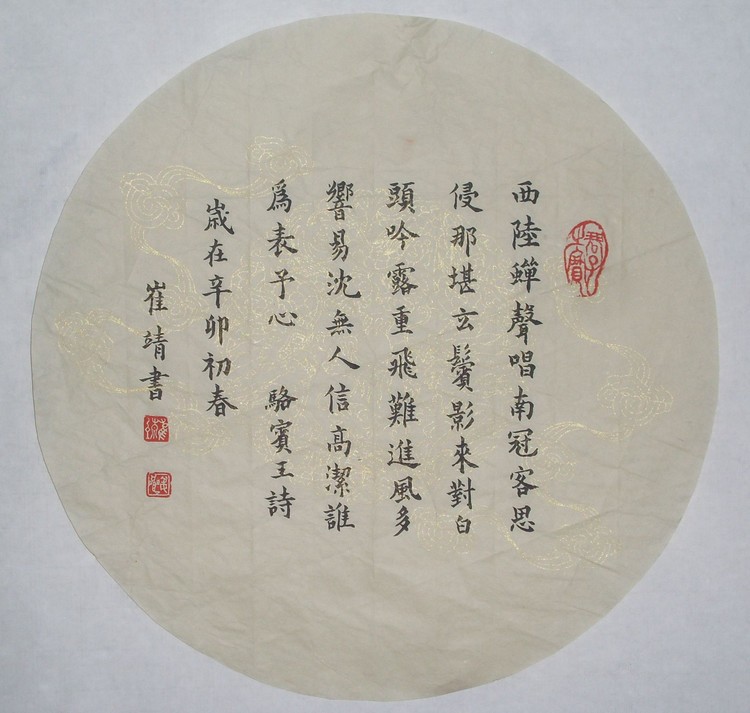 西陸蟬聲唱南冠客思
侵那堪玄鬢影來對白
頭吟露重飛難進風多
響易沈無人信高潔誰
為表予心 駱賓王詩
歲在辛卯初春
崔靖書